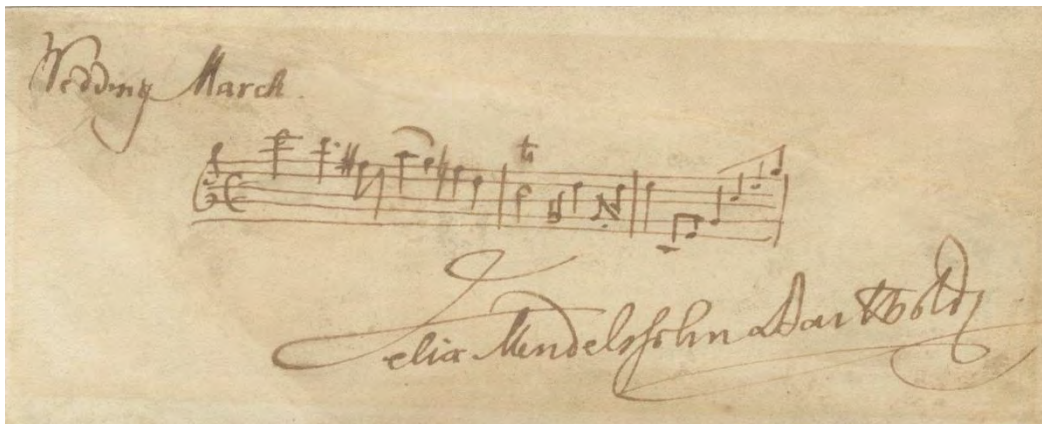 Wedding March
Felix Mendelssohn Bartholdy